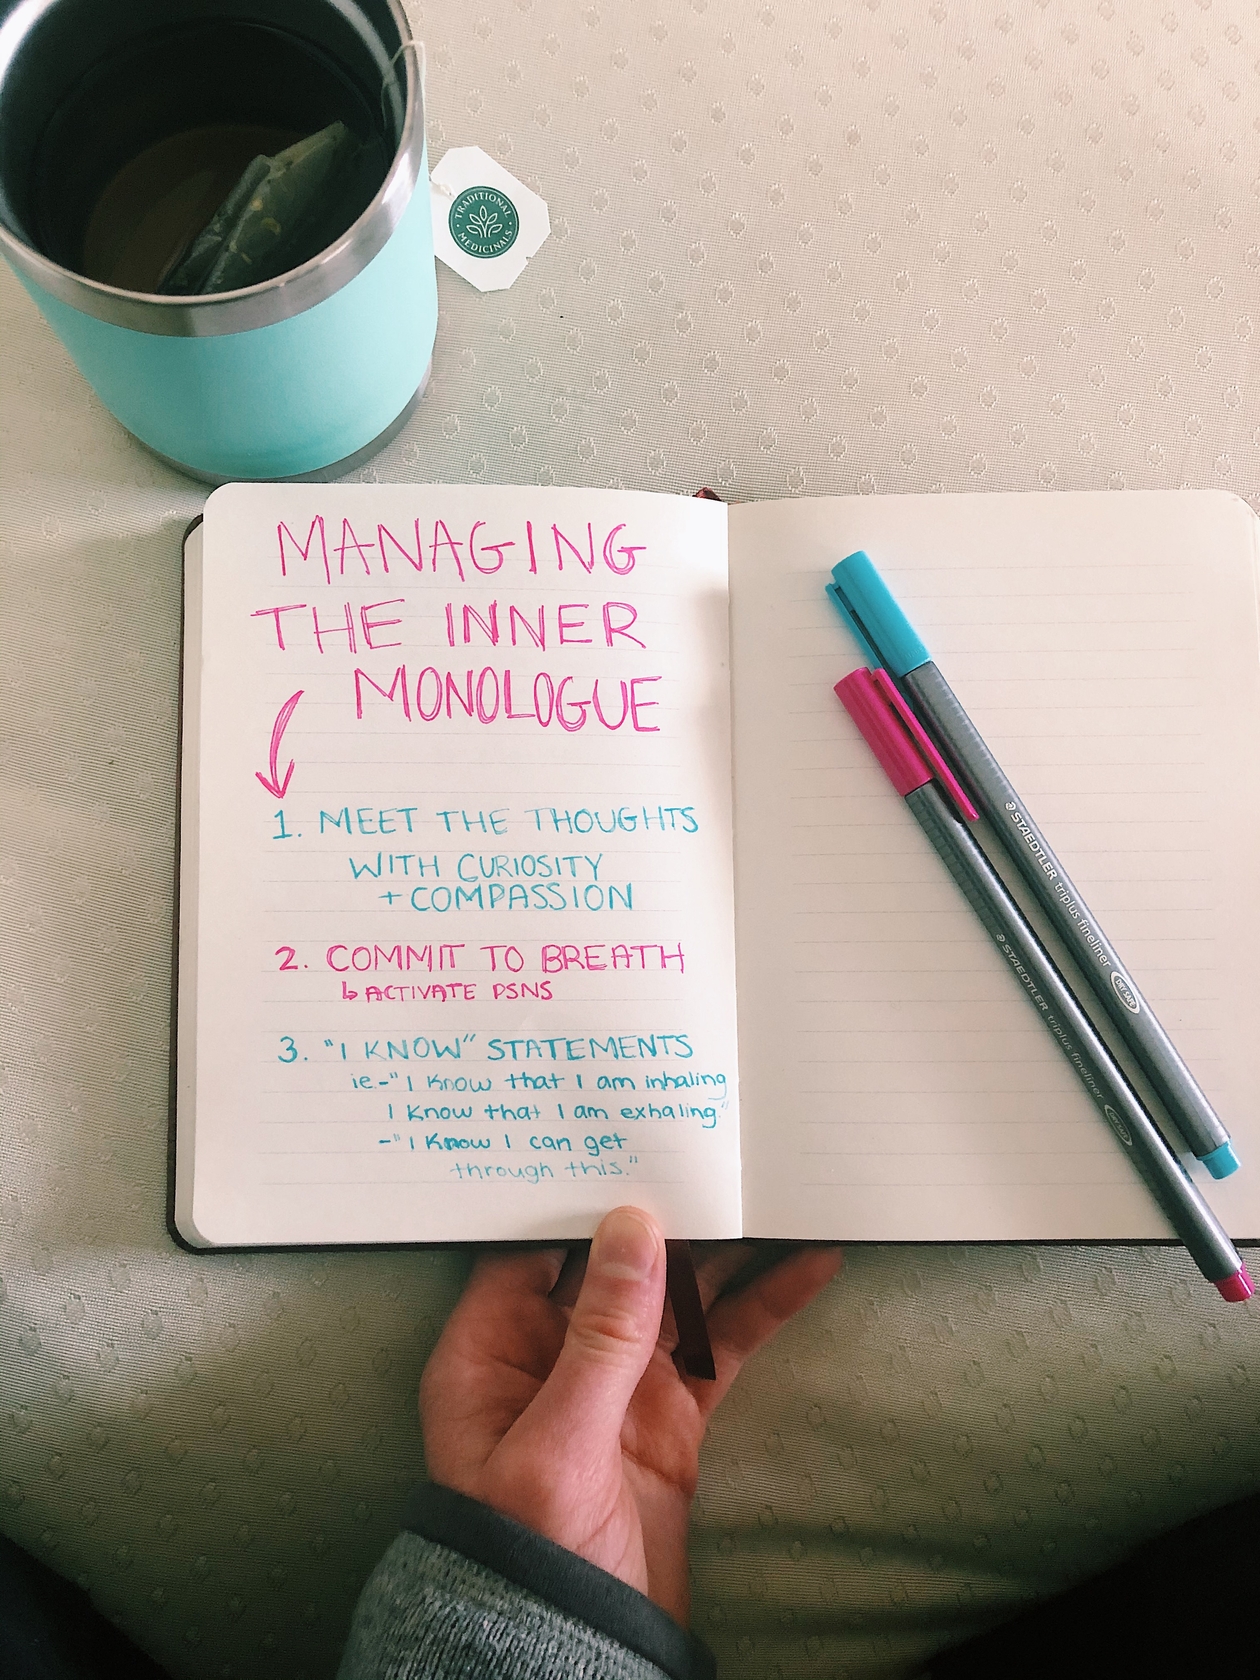 TRADITIONAL
MEDICINALS
MANAGING
THE INNER
MONOLOGUE
1. MEET THE THOUGHTS
WITH CURIOSITY
+ COMPASSION
2. COMMIT TO BREATH
↳ ACTIVATE PSNS
3. "I KNOW" STATEMENTS
ie - "I know that I am inhaling
I know that I am exhaling."
- "I know I can get
through this."
STAEDTLER triplus fineliner DRY SAFE
STAEDTLER triplus fineliner DRY SAFE